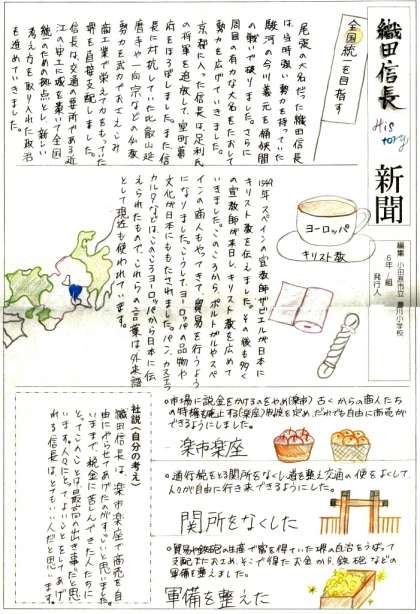 織田信長
History
新聞
編集 小田原市立 豊川小学校
6年1組
発行人
全国統一を目指す
尾張の大名だった織田信長
は当時強い勢力を持っていた
駿河の今川義元を桶狭間
の戦いで破りました。さらに
周囲の有力な大名をたおして
勢力を広げていきました。
京都に入った信長は足利氏
の将軍を追放して、室町幕
府をほろぼしました。また信
長に対抗していた比叡山延
暦寺や一向宗などの仏教
勢力を武力でおさえこみ
商工業で栄えて力をもっていた
堺を直接支配しました。
信長は交通の要所である近
江の安土に城を築いて全国
統一のための拠点とし、新しい
考え方を取り入れた政治
を進めていきました。
ヨーロッパ
キリスト教
1549年、スペインの宣教師ザビエルが日本に
キリスト教を伝えました。その後も多く
の宣教師が来日し、キリスト教を広めて
いきました。このころから、ポルトガルやスペ
インの商人もやってきて、貿易を行うよう
になりました。こうしてヨーロッパの品物や
文化が日本にももたらされました。パン、カステラ
カルタなどは、このころヨーロッパから日本に伝
えられたもので、これらの言葉は外来語
として現在も使われています。
○市場に税金をかけるのをやめ(楽市)古くからの商人たち
の特権を廃止する(楽座)制度を定め、だれでも自由に商売が
できるようにしました。
楽市楽座
○通行税をとる関所をなくし道を整え交通の便をよくして、
人々が自由に行き来できるようにした。
関所をなくした
○貿易や鉄砲の生産で富を得ていた堺の自治をうばって
支配をおさめ、そこで得たお金から、鉄砲などの
軍備を整えました。
軍備を整えた
社説(自分の考え)
織田信長は、楽市楽座で商売を自
由にやらせてあげたのがすごいと思いました。
いままで、税金に苦しんできた人たちに
とってこのことは、最高の出き事だと思
います。人々にとってよいことをしてあげ
れる信長は、とてもいい人だと思います。